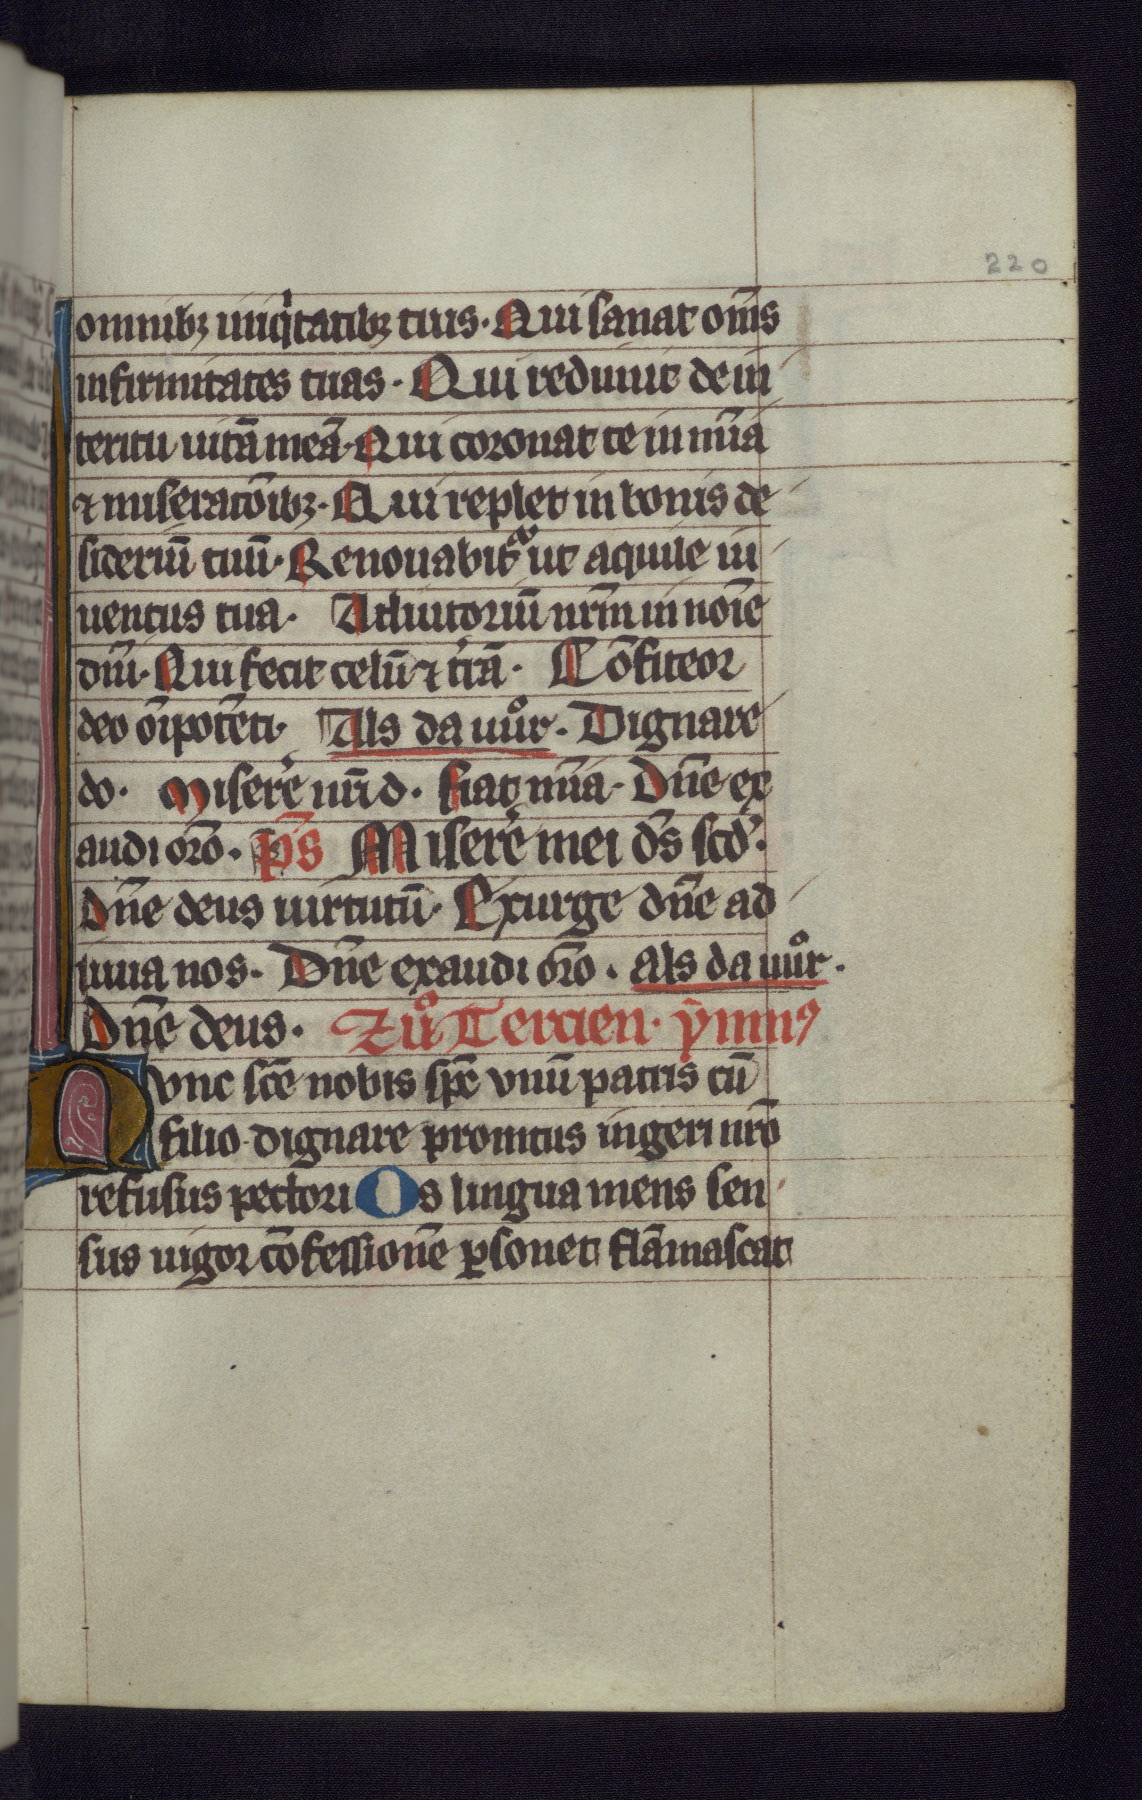 220
omnibꝫ iniqͥtatibꝫ tuis. Qui sanat om̄s
infirmitates tuas. Qui redimit de in
teritu uitā meā. Qui coronat te in mīa
⁊ miseratōibꝫ. Qui replet in bonis de
sideriū tuū. Renouabitᷣ ut aquile iu
uentus tua. Adiutoriū nr̄m in noīe
dn̄i. Qui fecit celū ⁊ t̄rā. Cōfiteor
deo oīpotēti. Als da uͦur. Dignare
do. Miserē nr̄i d. fiat mīa. Dn̄e ex
audi orō. p̄s Miserē mei ds̄ scd̄.
Dn̄e deus uirtutū. Exurge dn̄e ad
iuua nos. Dn̄e exaudi orō. Als da uͦur.
Dn̄e deus. Zuͦ Tercien. ym̄nꝰ
Nvnc sc̄e nobis sp̄e vnū patris cū
filio dignare promtus ingeri nr̄o
refusus pectori Os lingua mens sen
sus uigor cōfessionē ꝑsonet flāmascat